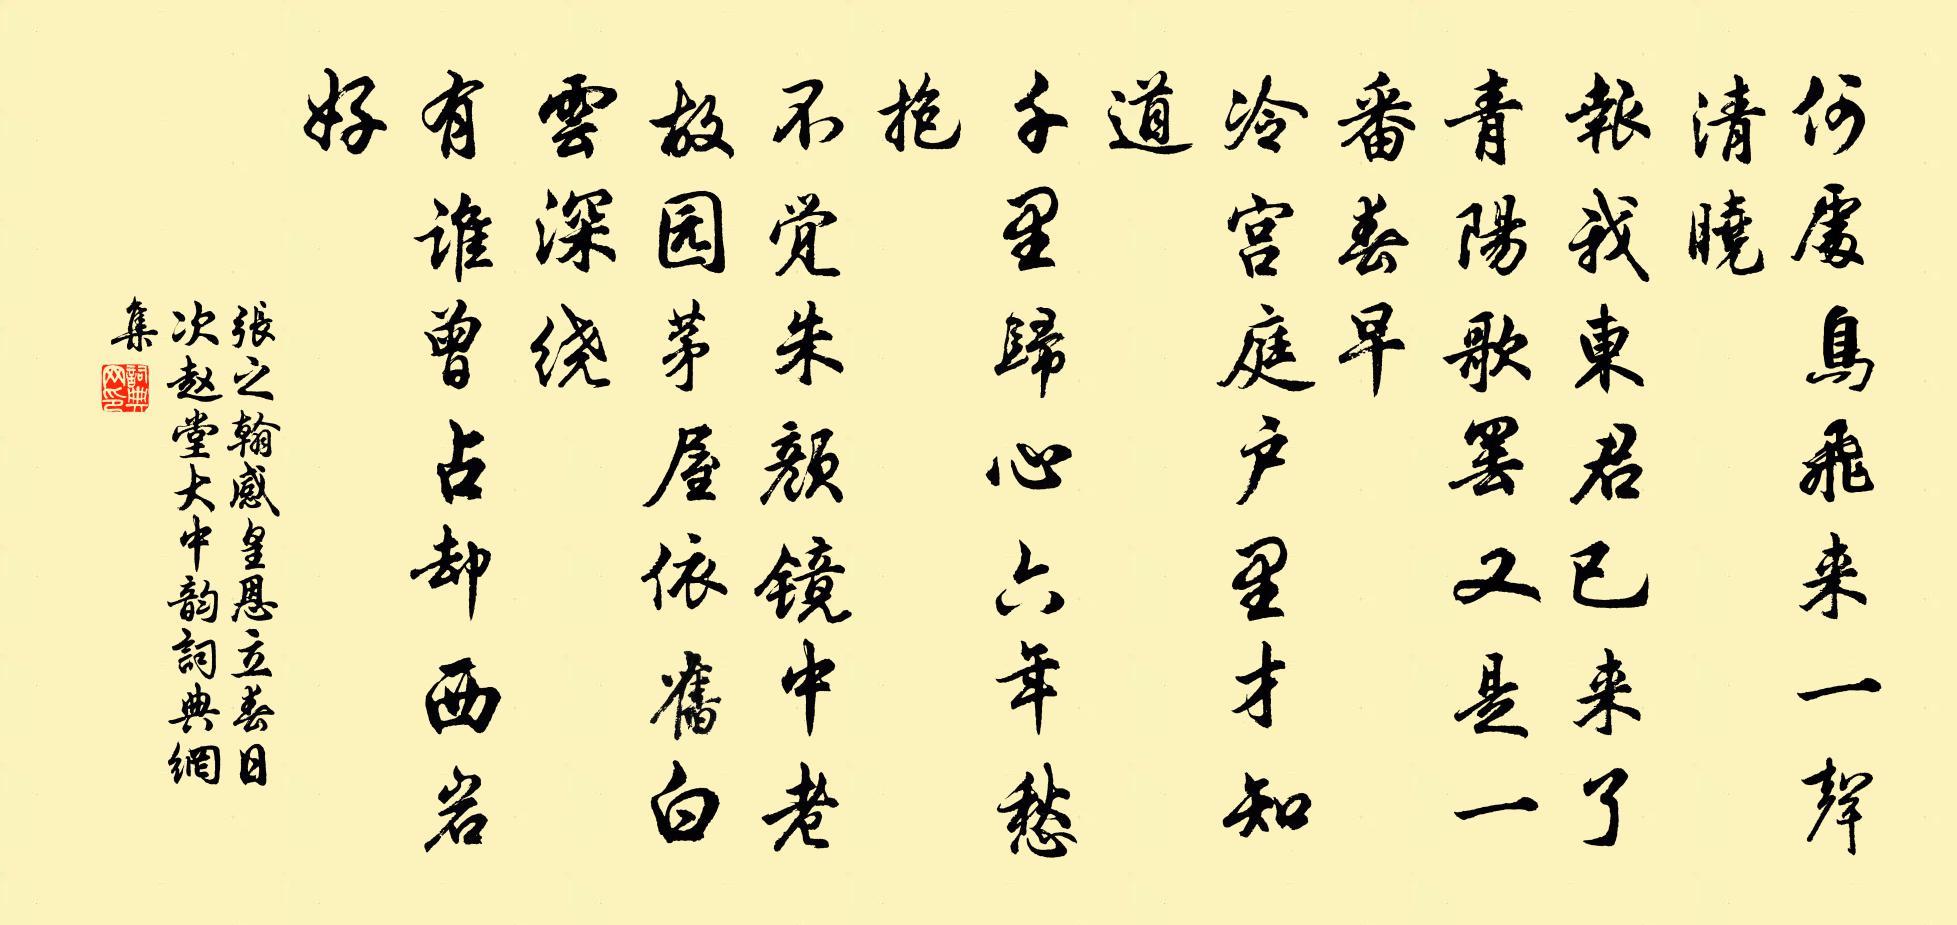 何處鳥飛来一聲
清曉
報我東君已来了
青陽歌罢又是一
番春早
冷宫庭户里才知
道
千里歸心六年愁
抱
不觉朱颜镜中老
故园茅屋依舊白
雲深绕
有谁曾占却西岩
好
張之翰感皇恩立春日
次赵堂大中韵詞典網
集
詞典
网印